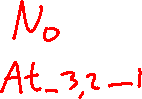 No
At_3,2_1